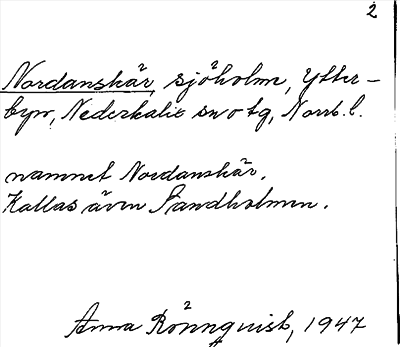 2
Nordanskär, sjöholm, Ytter-
byn, Nederkalix sn o tg, Norrb. l.
namnet Nordanskär.
Kallas även Sandholmen.
Anna Rönnquist, 1947